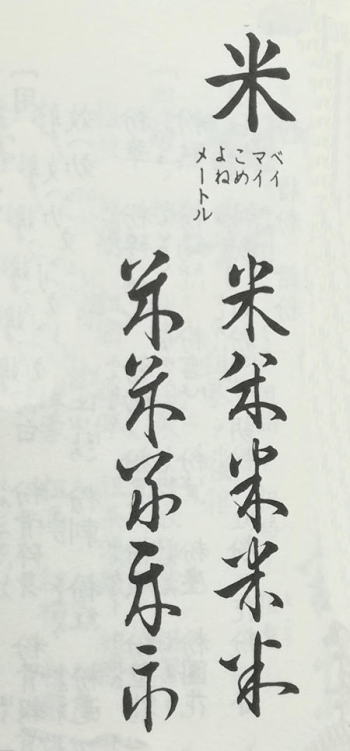 米
ベイ
マイ
こめ
よね
メートル
米米米米米
米米米米米